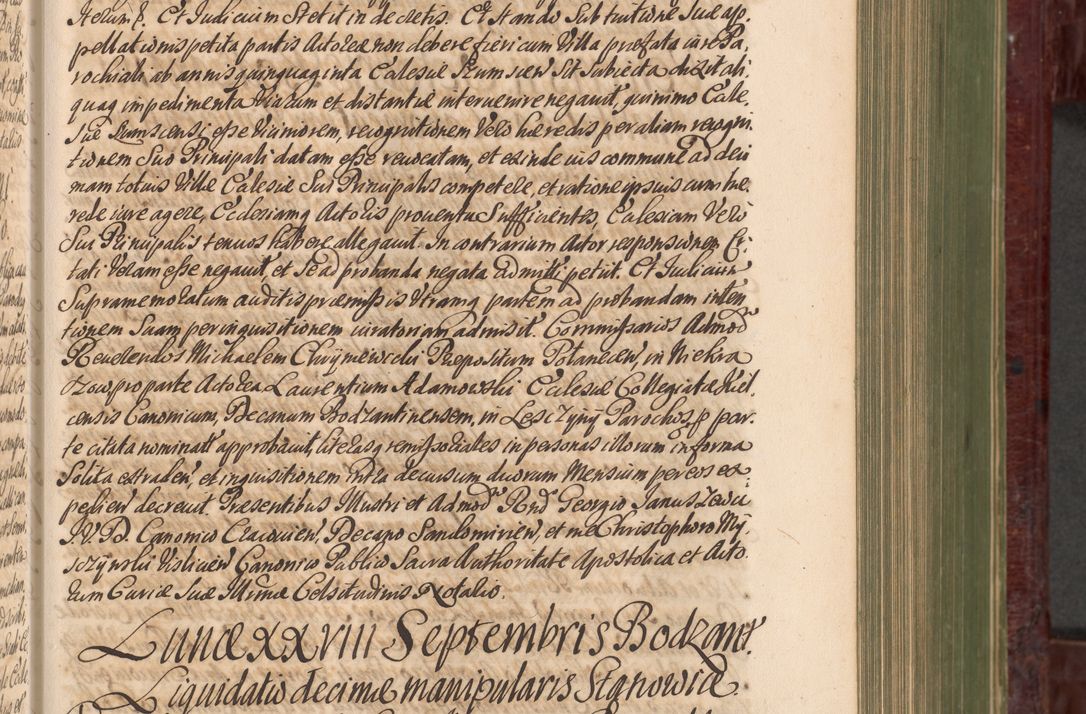 Iterum p. Et Iudicium Stetit in decretis. Et stando Sub tuitione Suæ ap,
pellationis petita partis Actoreæ non debere fieri cum Villa præfata iure Pa,
rochiali ab annis quinquaginta Ecclesiæ Szumscen Sit Subiecta dixit ali,
quaq impedimenta Viarum et distantiæ intervenire negavit, quinimo Eccle,
siæ Szumscensi esse Viciniorem, recognitionem Vero hæredis per aliam recogni
tionem Suo Principali datam esse revocatam, et exinde ius commune ad deci
mam totius Villæ Ecclesiæ Sui Principalis competere, et ratione ipsius cum hæ,
rede iure agere, Ecclesiamq Actoris proventus Sufficientes, Ecclesiam Verò
Sui Principalis tenuos habere allegavit. In contrarium Actor responsionem Ci,
tati Veram esse negavit, et Se ad probanda negata admitti petiit. Et Iudicium
Supramemoratum auditis præmissis Utramq partem ad probandam inten
tionem Suam per inquisitionem iuratoriam admisit. Commissarios Admod
Reverendos Michaelem Chwyniewicki Præpositum Potanecen, in Niekra
szow, pro parte Actorea, Laurentium Adamowski Ecclesiæ Collegiatæ Kiel
censis Canonicum, Decanum Bodzantinensem, in Leszczyny Parochos, p par,
te citata nominatt approbavit, literasq remissoriales in personas illorum in forma
Solita extraden, et inquisitionem intra decursum duorum Mensium per eos ex,
pedien decrevit. Præsentibus Illustri et Admod Rnd Georgio Januszewic
I. V. D. Canonico Cracovien, Decano Sandomirien, et me Christophoro My,
szczynski Vislicien Canonico Publico Sacra Authoritate Apostolica et Acto
rum Curiæ Suæ Illrmæ Celsitudinis Notario.
Lunæ xxviii Septembris Bodzant.
Liquidatio decimæ manipularis Stgnowic